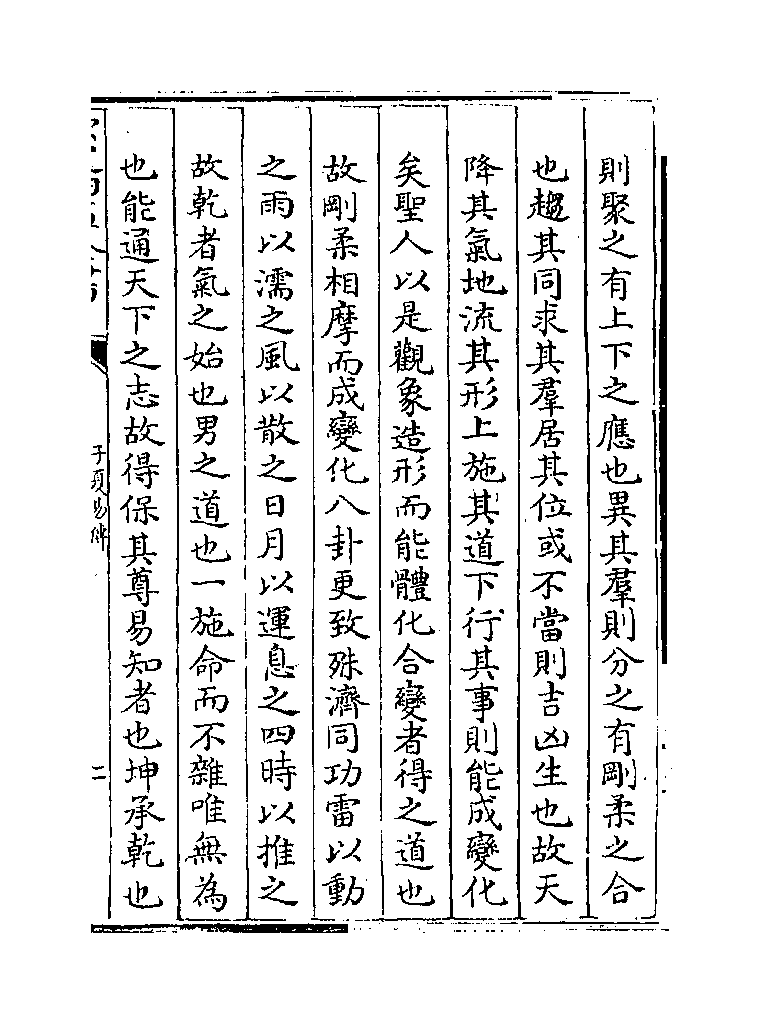 則聚之有上下之應也異其羣則分之有剛柔之合
也趨其同求其羣居其位或不當則吉凶生也故天
降其氣地流其形上施其道下行其事則能成變化
矣聖人以是觀象造形而能體化合變者得之道也
故剛柔相摩而成變化八卦更致殊濟同功雷以動
之雨以濡之風以散之日月以運息之四時以推之
故乾者氣之始也男之道也一施命而不雜唯無為
也能通天下之志故得保其尊易知者也坤承乾也
子夏易傳
二